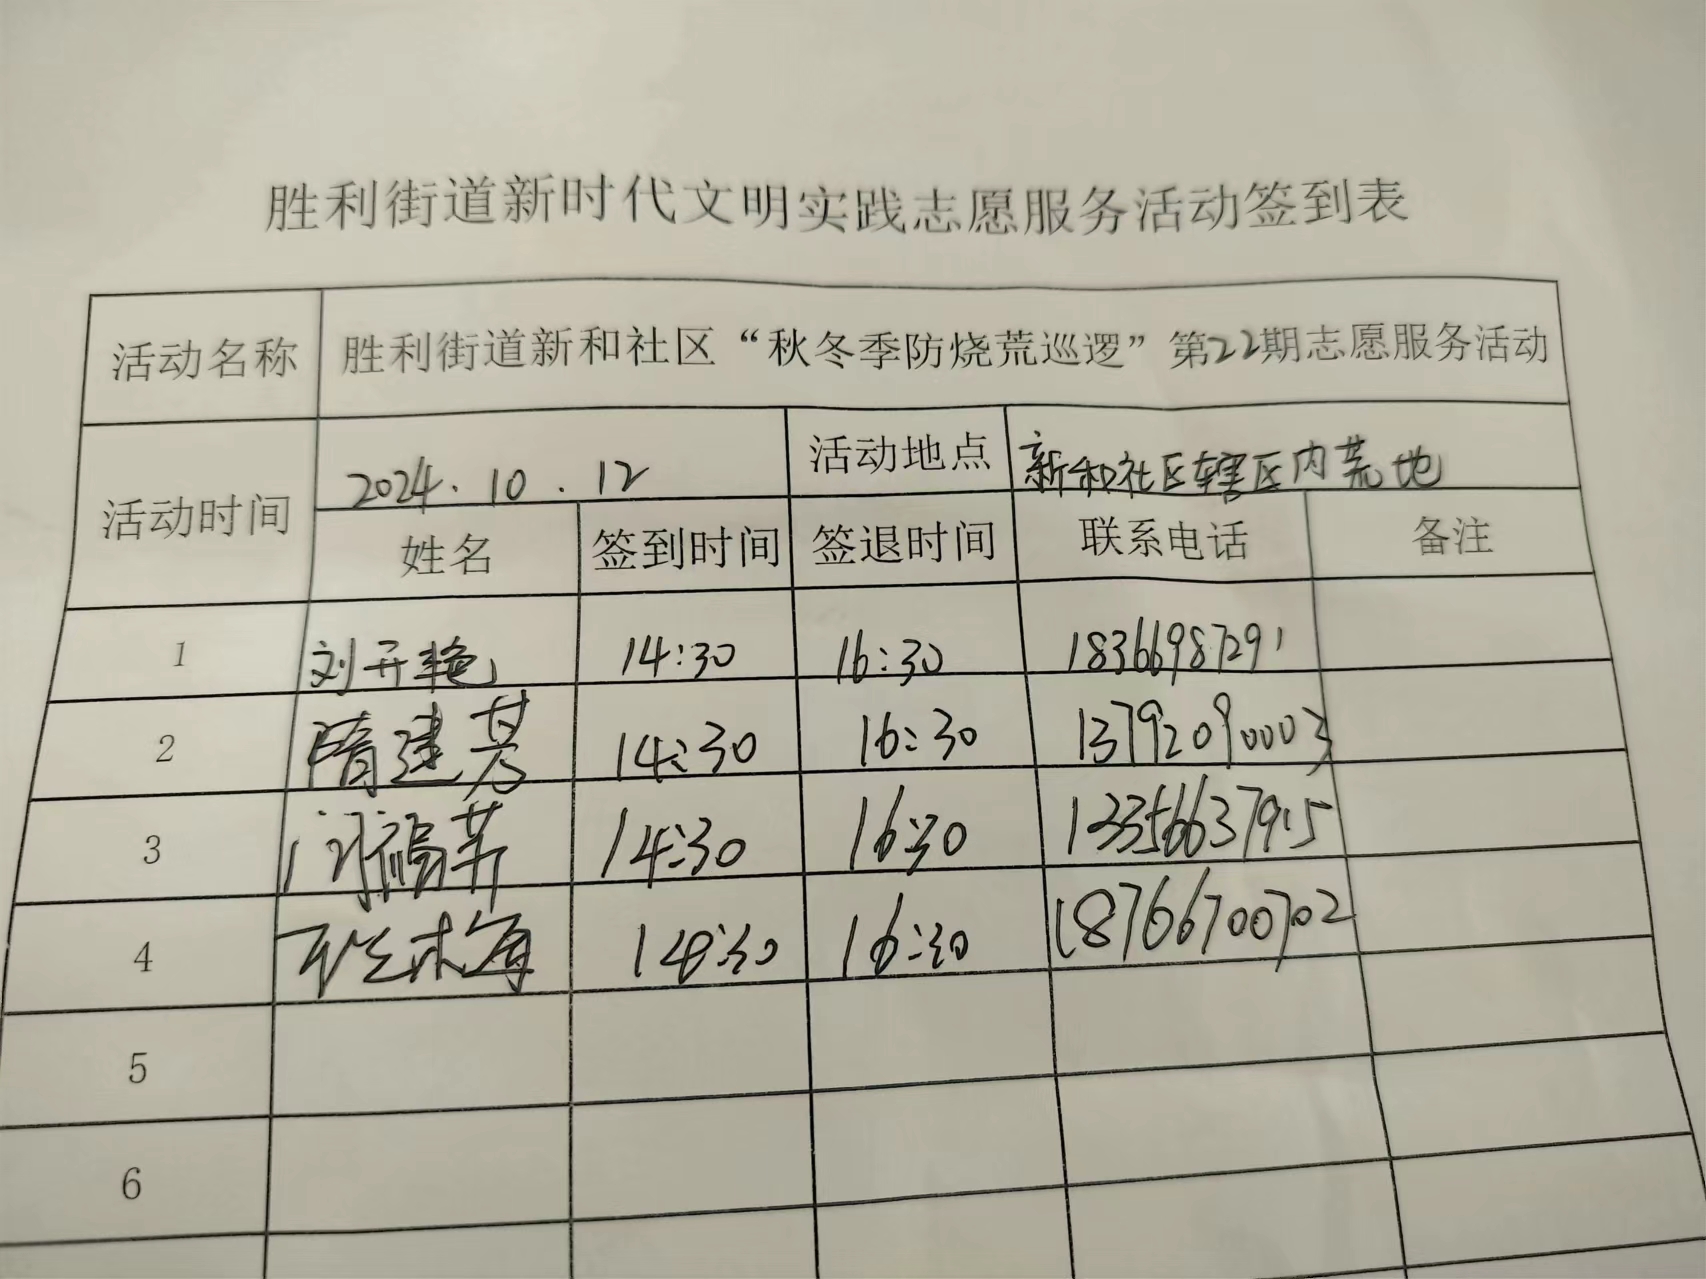 胜利街道新时代文明实践志愿服务活动签到表
活动名称 胜利街道新和社区“秋冬季防烧荒巡逻”第22期志愿服务活动
活动时间 2024.10.12 活动地点 新和社区辖区内荒地
姓名 签到时间 签退时间 联系电话 备注
1 刘开艳 14:30 16:30 18366987291
2 隋建芳 14:30 16:30 13792090003
3 14:30 16:30 13356637915
4 14:30 16:30 18766700702
5
6